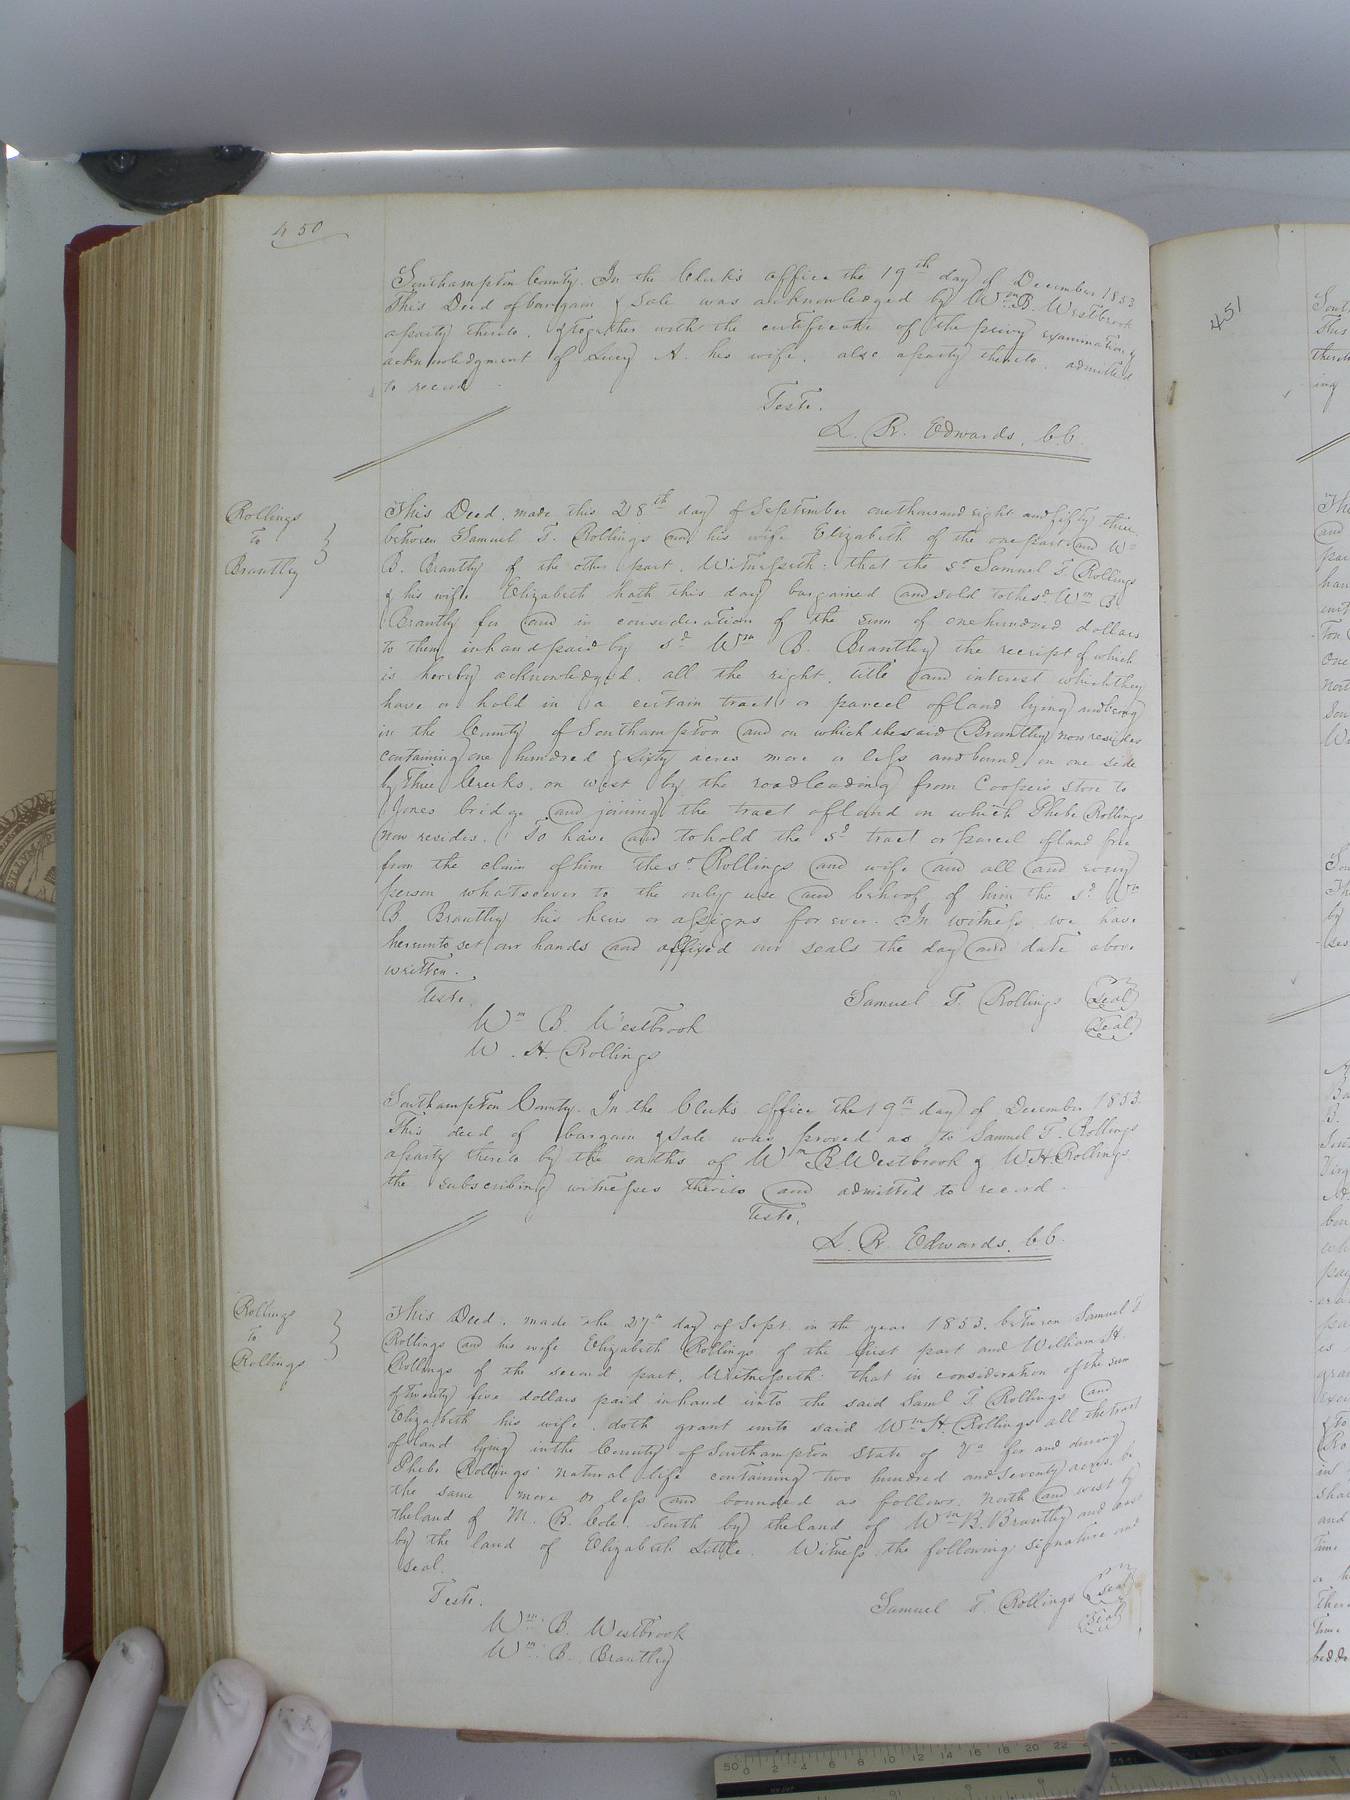 450
Southampton County. In the Clerks office the 19th day of December 1853
This Deed of bargain & Sale was acknowledged by Wm B. Westbrook
a party thereto, & together with the certificate of the privy examination &
acknowledgment of Lucy A. his wife, also a party thereto, admitted
to record
Teste,
L. R. Edwards, CC.
Rollings
to
Brantley
This Deed, made this 28th day of September one thousand eight and fifty three
between Samuel T. Rollings and his wife Elizabeth of the one part and Wm
B. Brantley of the other part, Witnesseth: that the sd Samuel T. Rollings
& his wife Elizabeth hath this day bargained and sold to the sd Wm B.
Brantley for and in consideration of the sum of one hundred dollars
to them in hand paid by sd Wm B. Brantley the receipt of which
is hereby acknowledged, all the right, title and interest which they
have or hold in a certain tract or parcel of land lying and being
in the County of Southampton and on which the said Brantley now resides
containing one hundred & sixty acres more or less and bound, on one side
by Three Creeks, on west by the road leading from Coopers store to
Jones bridge and joining the tract of land on which Phebe Rollings
now resides. To have and to hold the sd tract or parcel of land free
from the claim of him the sd Rollings and wife and all and every
person whatsoever to the only use and behoof of him the sd Wm
B Brantley his heirs or assigns for ever. In witness we have
hereunto set our hands and affixed our seals the day and date above
written.
Teste,
Samuel T. Rollings Seal
Seal
Wm B. Westbrook
W. H. Rollings
Southampton County. In the Clerks office the 19th day of December 1853.
This deed of bargain & Sale was proved as to Samuel T. Rollings
a party thereto by the oaths of Wm B Westbrook & W. H. Rollings
the subscribing witnesses thereto and admitted to record.
Teste,
L. R. Edwards, CC.
Rollings
to
Rollings
This Deed, made the 27th day of Sept. in the year 1853, between Samuel T
Rollings and his wife Elizabeth Rollings of the first part and William H.
Rollings of the second part, Witnesseth: that in consideration of the sum
of Twenty five dollars paid in hand unto the said Saml T Rollings and
Elizabeth his wife, doth grant unto said Wm H. Rollings all the tract
of land lying in the County of Southampton State of Va for and during
Phebe Rollings natural life containing two hundred and seventy acres, be
the same more or less and bounded as follows: North and west by
the land of M. B. Cole, South by the land of Wm B. Brantley and east
by the land of Elizabeth Little. Witness the following signature and
seal.
Teste.
Samuel T. Rollings Seal
Seal
Wm B. Westbrook
Wm B. Brantley
451